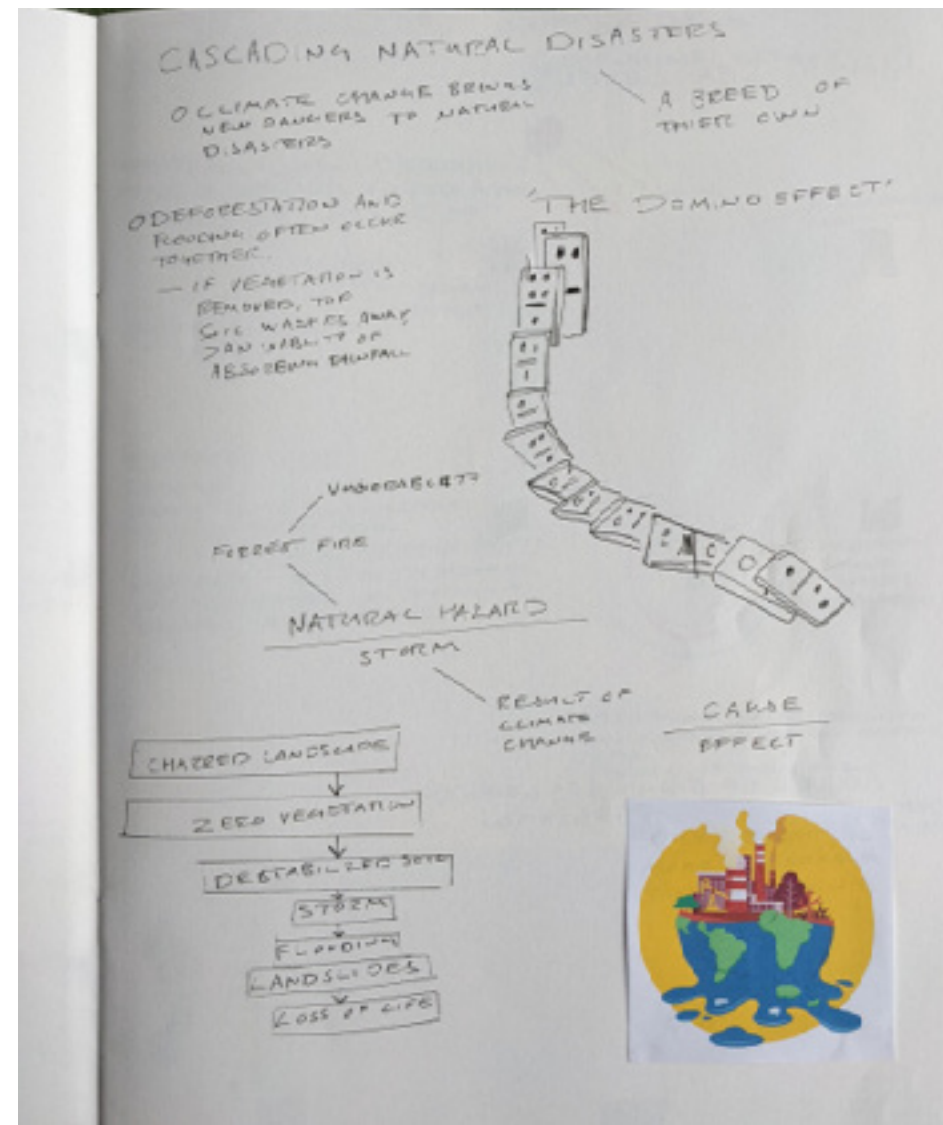 CASCADING NATURAL DISASTERS
A BREED OF
THIER OWN
O CLIMATE CHANGE BRINGS
NEW DANGERS TO NATURAL
DISASTERS
'THE DOMINO EFFECT'
O DEFORESTATION AND
FLOODING OFTEN OCCUR
TOGETHER.
— IF VEGETATION IS
REMOVED, TOP
SOIL WASHES AWAY
OF
ABSORBING RAINFALL
FORREST FIRE
NATURAL HAZARD
STORM
RESULT OF
CLIMATE
CHANGE
CAUSE
EFFECT
CHARRED LANDSCAPE
ZERO VEGETATION
DESTABILIZED SOIL
STORM
FLOODING
LANDSLIDES
LOSS OF LIFE